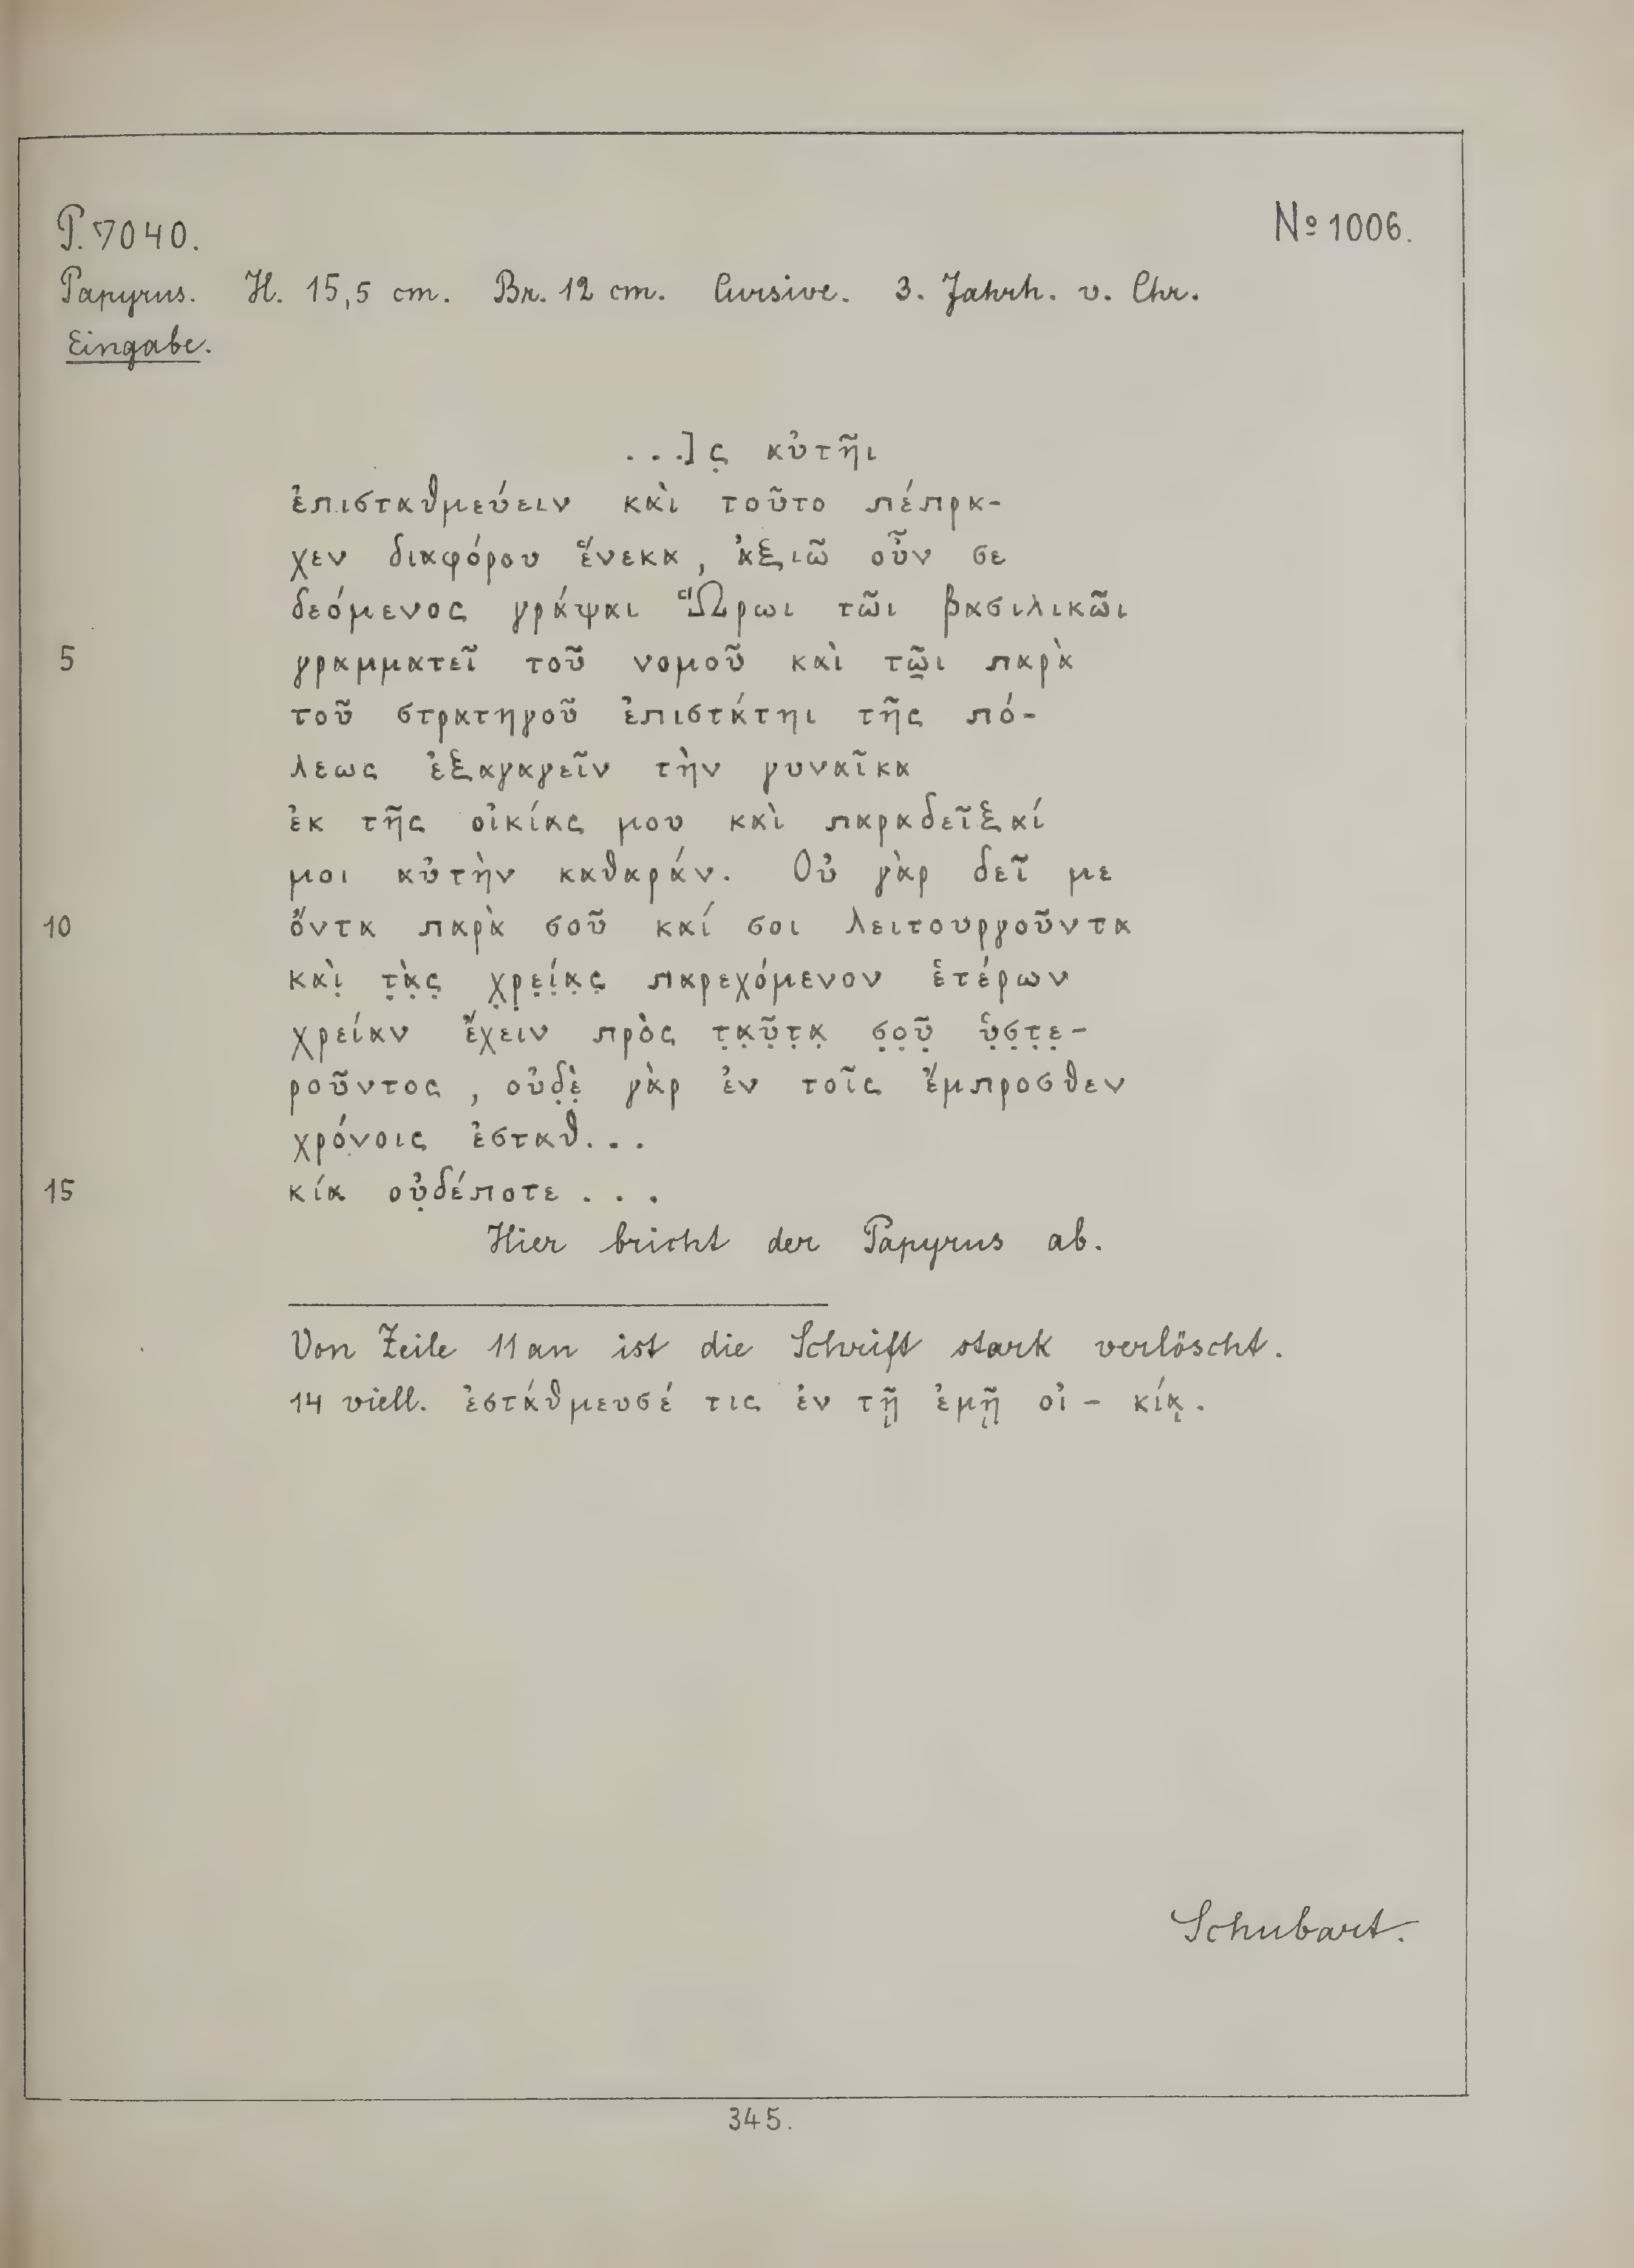 P. 7040. No 1006.
Papyrus. H. 15,5 cm. Br. 12 cm. Cursive. 3. Jahrh. v. Chr.
Eingabe.
. . .]ς̣ αὐτῆι
ἐπισταθμεύειν καὶ τοῦτο πέπρα-
χεν διαφόρου ἕνεκα, ἀξιῶ οὖν σε
δεόμενος γράψαι Ὥρωι τῶι βασιλικῶι
5 γραμματεῖ τοῦ νομοῦ καὶ τῶ̣ι παρὰ
τοῦ στρατηγοῦ ἐπιστάτηι τῆς πό-
λεως ἐξαγαγεῖν τὴν γυναῖκα
ἐκ τῆς οἰκίας μου καὶ παραδεῖξαί
μοι αὐτὴν καθαράν. Οὐ γὰρ δεῖ με
10 ὄντα παρὰ σοῦ καί σοι λειτουργοῦντα
καὶ̣ τ̣ὰ̣ς̣ χ̣ρ̣ε̣ί̣α̣ς̣ παρεχόμενον ἑτέρων
χρείαν ἔχειν πρὸς τ̣α̣ῦ̣τ̣α̣ σ̣ο̣ῦ̣ ὑ̣σ̣τ̣ε̣-
ροῦντος, οὐδ̣ὲ̣ γὰρ ἐν τοῖς ἔμπροσθεν
χρόνοις ἐσταθ. . .
15 κία οὐ̣δέποτε . . .
Hier bricht der Papyrus ab.
Von Zeile 11 an ist die Schrift stark verlöscht.
14 viell. ἐστάθμευσέ τις ἐν τῇ ἐμῇ οἰ - κίᾳ.
Schubart.
345.